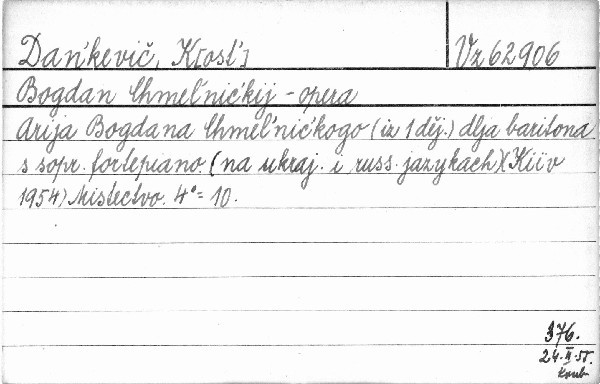 Dańkevič, K[osť] Vz 62906
Bogdan Chmeľnićkij - opera
Arija Bogdana Chmeľnićkogo (iz 1 děj.) dlja baritona
s sopr. fortepiano. (na ukraj. i russ. jazykach)(Kiïv
1954) Mistectvo. 4° = 10.
376.
24. II. 55.